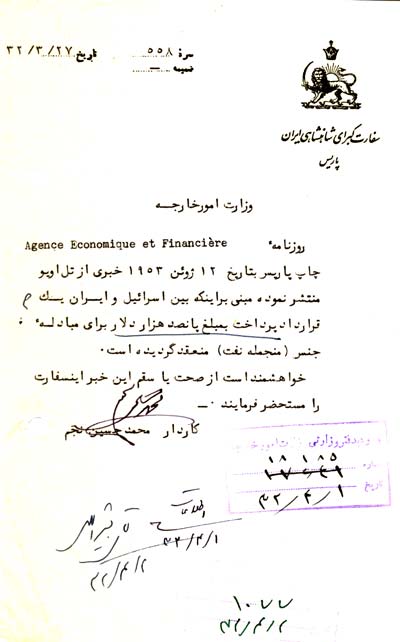 نمرهٔ ۵۵۸ تاریخ ۳۲/۳/۲۷
ضمیمه —
سفارت کبرای شاهنشاهی ایران
پاریس
وزارت امورخارجه
روزنامهٔ Agence Economique et Financière
چاپ پاریس بتاریخ ۱۲ ژوئن ۱۹۵۳ خبری از تل اویو
منتشر نموده مبنی براینکه بین اسرائیل و ایران یک
قرارداد پرداخت بمبلغ پانصد هزار دلار برای مبادلهٔ
جنس (منجمله نفت) منعقد گردیده است.
خواهشمند است از صحت یا سقم این خبر اینسفارت
را مستحضر فرمایند. —
کاردار محمد حسین نجم
ورود دفتر وزارتی وزارت امور خارجه
شماره ۱۸۱۸۵
تاریخ ۳۲/۴/۱
اطلاعات
۳۲/۴/۱
۳۲/۴/۲
۱۰۷۷
۳۲/۴/۲